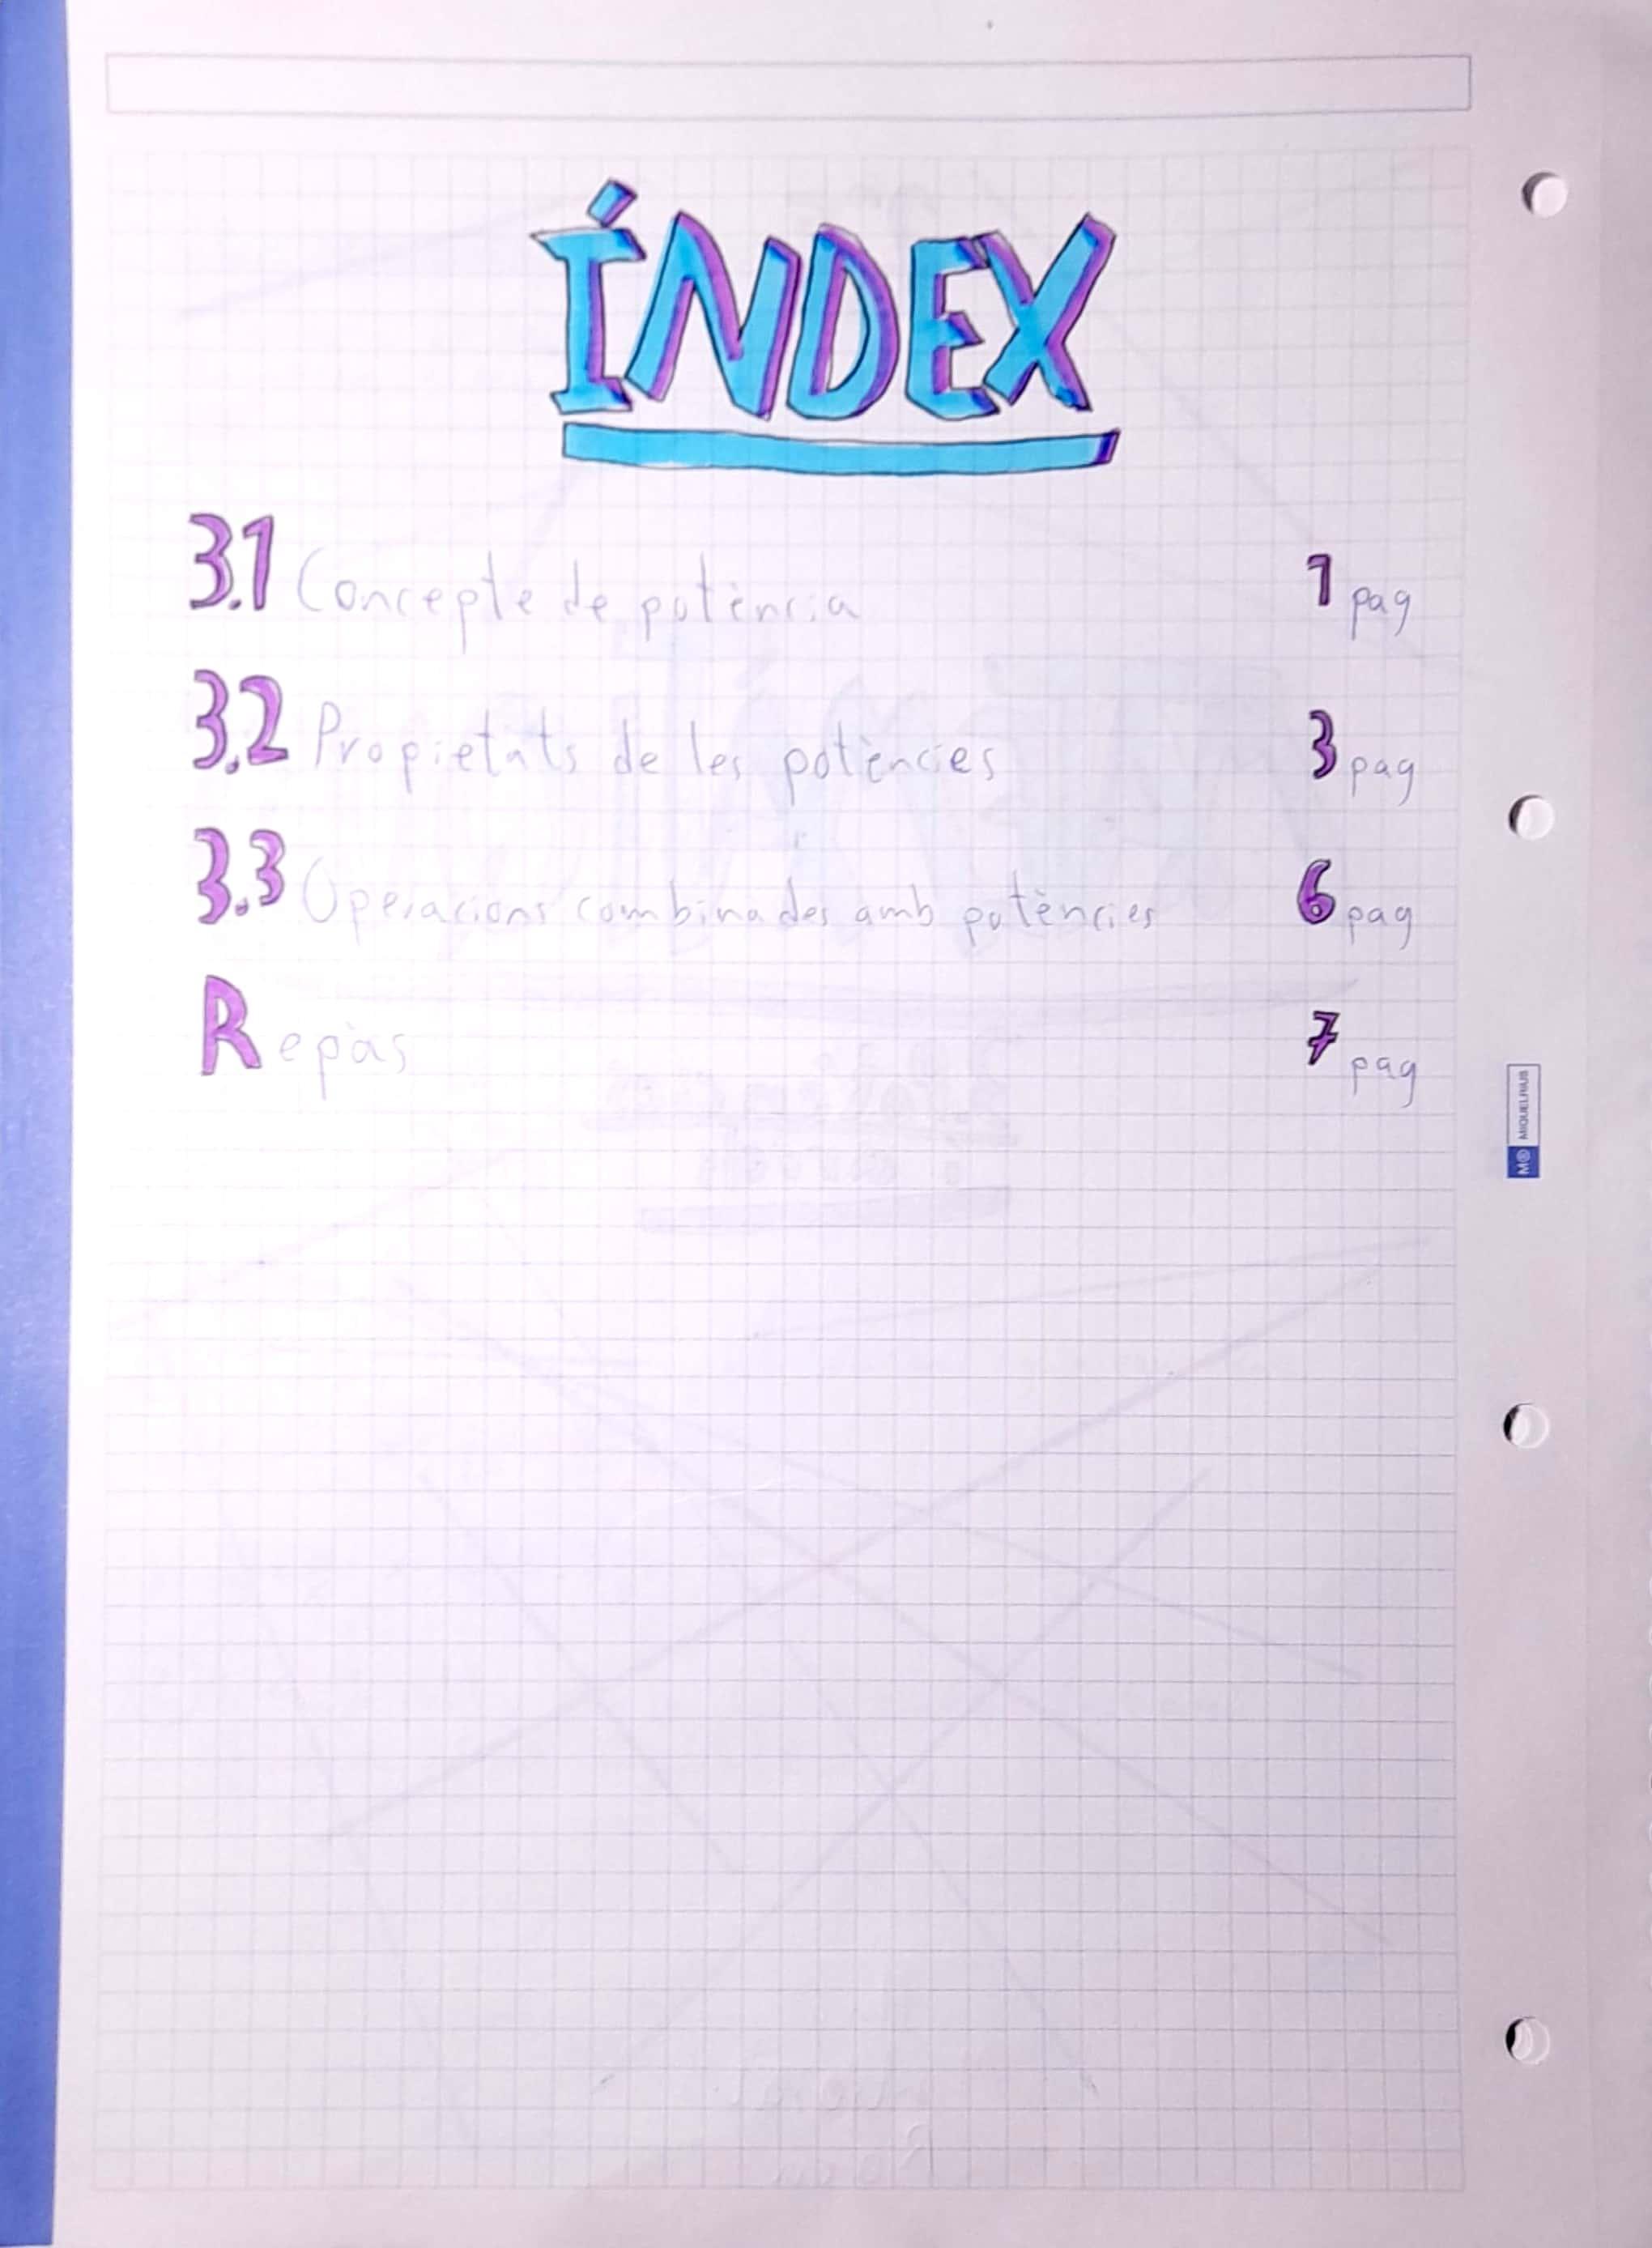 ÍNDEX
3.1 Concepte de potència 1 pag
3.2 Propietats de les potències 3 pag
3.3 Operacions combinades amb potències 6 pag
Repàs 7 pag
MR MIQUELRIUS